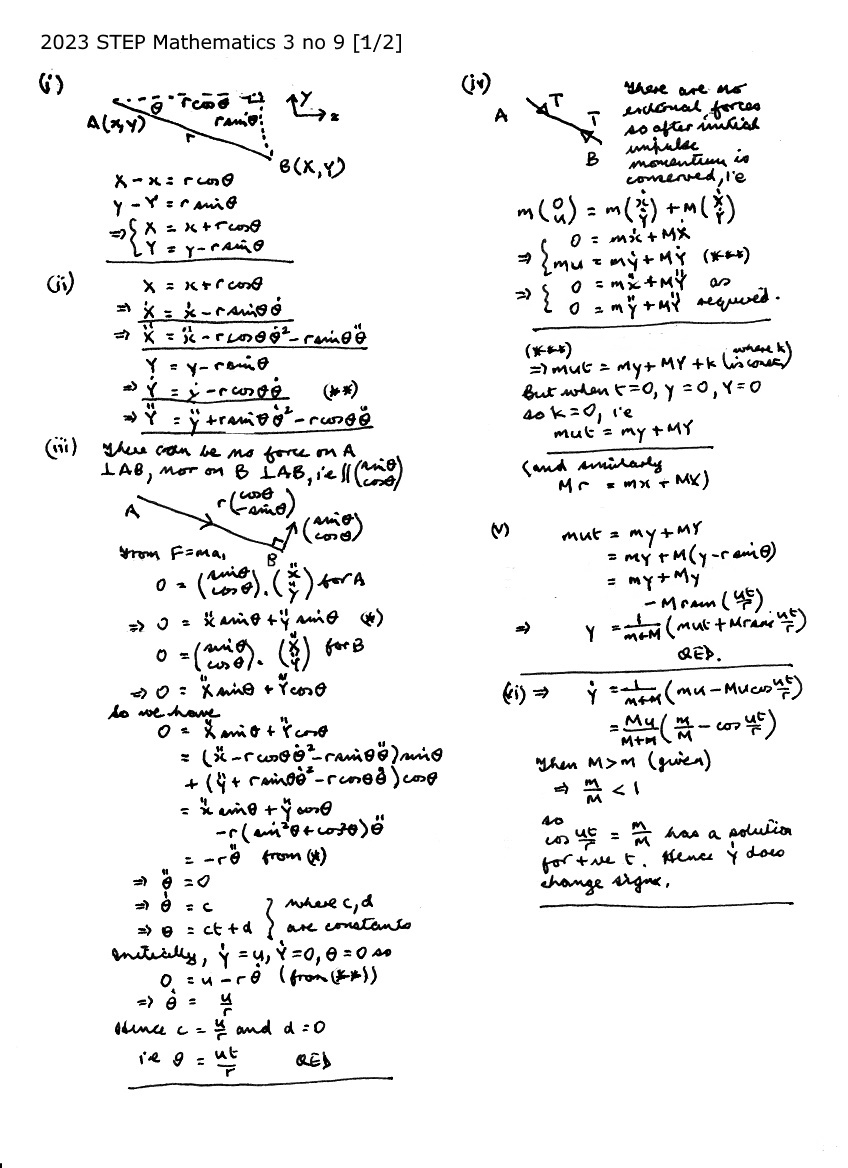 2023 STEP Mathematics 3 no 9 [1/2]
(i)
θ r cos θ
r sin θ
Y
x
A(x,y)
r
B(X,Y)
X - x = r cos θ
y - Y = r sin θ
⇒ { X = x + r cos θ
Y = y - r sin θ
(ii) X = x + r cos θ
⇒ Ẋ = ẋ - r sin θ θ̇
⇒ Ẍ = ẍ - r cos θ θ̇² - r sin θ θ̈
Y = y - r sin θ
⇒ Ẏ = ẏ - r cos θ θ̇ (**)
⇒ Ÿ = ÿ + r sin θ θ̇² - r cos θ θ̈
(iii) There can be no force on A
⊥ AB, nor on B ⊥ AB, i.e ∥ (sin θ
cos θ)
A
r (cos θ
-sin θ)
(sin θ
cos θ)
B
From F=ma,
0 = (sin θ
cos θ) . (ẍ
ÿ) for A
⇒ 0 = ẍ sin θ + ÿ sin θ (*)
0 = (sin θ
cos θ) . (Ẍ
Ÿ) for B
⇒ 0 = Ẍ sin θ + Ÿ cos θ
So we have
0 = Ẍ sin θ + Ÿ cos θ
= (ẍ - r cos θ θ̇² - r sin θ θ̈) sin θ
+ (ÿ + r sin θ θ̇² - r cos θ θ̈) cos θ
= ẍ sin θ + ÿ cos θ
- r (sin² θ + cos² θ) θ̈
= - r θ̈ from (*)
⇒ θ̈ = 0
⇒ θ̇ = c } where c, d
⇒ θ = ct + d } are constants
Initially, ẏ = u, Ẏ = 0, θ = 0 so
0 = u - r θ̇ (from (**))
⇒ θ̇ = u/r
Hence c = u/r and d = 0
i.e θ = ut/r QED
(iv)
A
T
T
B
There are no
external forces
so after initial
impulse
momentum is
conserved, i.e
m (0
u) = m (ẋ
ẏ) + M (Ẋ
Ẏ)
⇒ { 0 = mẋ + MẊ
mu = mẏ + MẎ (***)
⇒ { 0 = mẍ + MŸ as
0 = mÿ + MŸ required.
(***)
⇒ mut = my + MY + k (where k
is const)
But when t=0, y=0, Y=0
so k=0, i.e
mut = my + MY
(and similarly
Mr = mx + MX)
(v) mut = my + MY
= my + M(y - r sin θ)
= my + My
- Mr sin (ut/r)
⇒ y = 1/(m+M) (mut + Mr sin ut/r)
QED.
(vi) ⇒ Ẏ = 1/(m+M) (mu - Mu cos ut/r)
= Mu/(M+m) (m/M - cos ut/r)
Then M > m (given)
⇒ m/M < 1
so
cos ut/r = m/M has a solution
for +ve t. Hence Ẏ does
change signs.